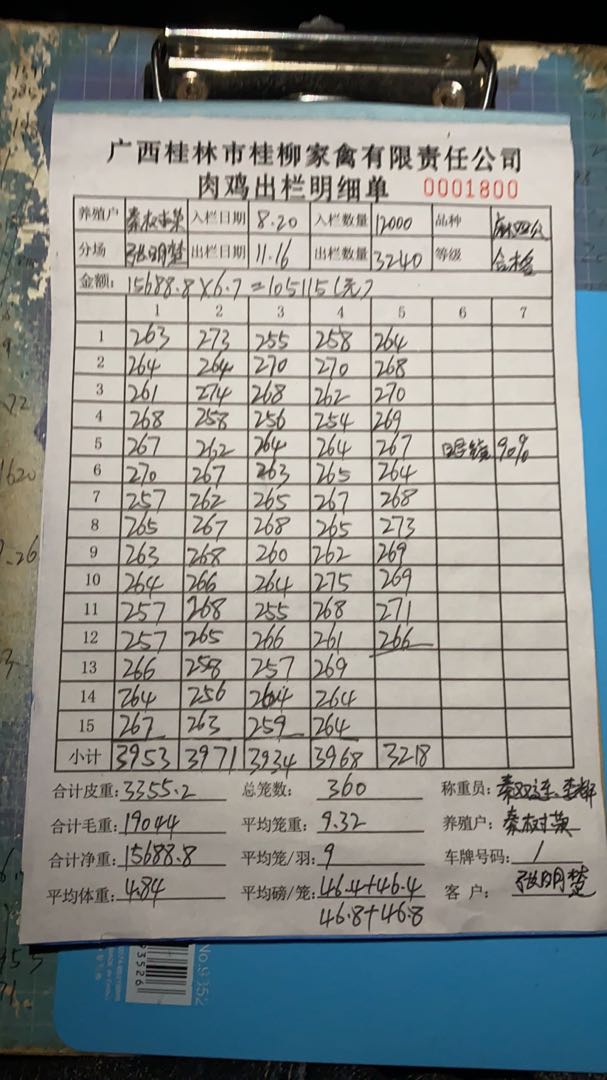 广西桂林市桂柳家禽有限责任公司
肉鸡出栏明细单 0001800
养殖户 秦树荣 入栏日期 8.20 入栏数量 12000 品种
分场 张明楚 出栏日期 11.16 出栏数量 3240 等级 合格
金额: 15688.8×6.7=105115(元)
1 2 3 4 5 6 7
1 263 273 255 258 264
2 264 264 270 270 268
3 261 274 268 262 270
4 268 258 256 254 269
5 267 262 264 264 267 90%
6 270 267 263 265 264
7 257 262 265 267 268
8 265 267 268 265 273
9 263 268 260 262 269
10 264 266 264 275 269
11 257 268 255 268 271
12 257 265 266 261 266
13 266 258 257 269
14 264 256 264 264
15 267 263 259 264
小计 3953 3971 3934 3968 3218
合计皮重: 3355.2 总笼数: 360 称重员:
合计毛重: 19044 平均笼重: 9.32 养殖户: 秦树荣
合计净重: 15688.8 平均笼/羽: 9 车牌号码: /
平均体重: 4.84 平均磅/笼: 46.4+46.4 客户: 张明楚
46.8+46.8
No.9352
93526